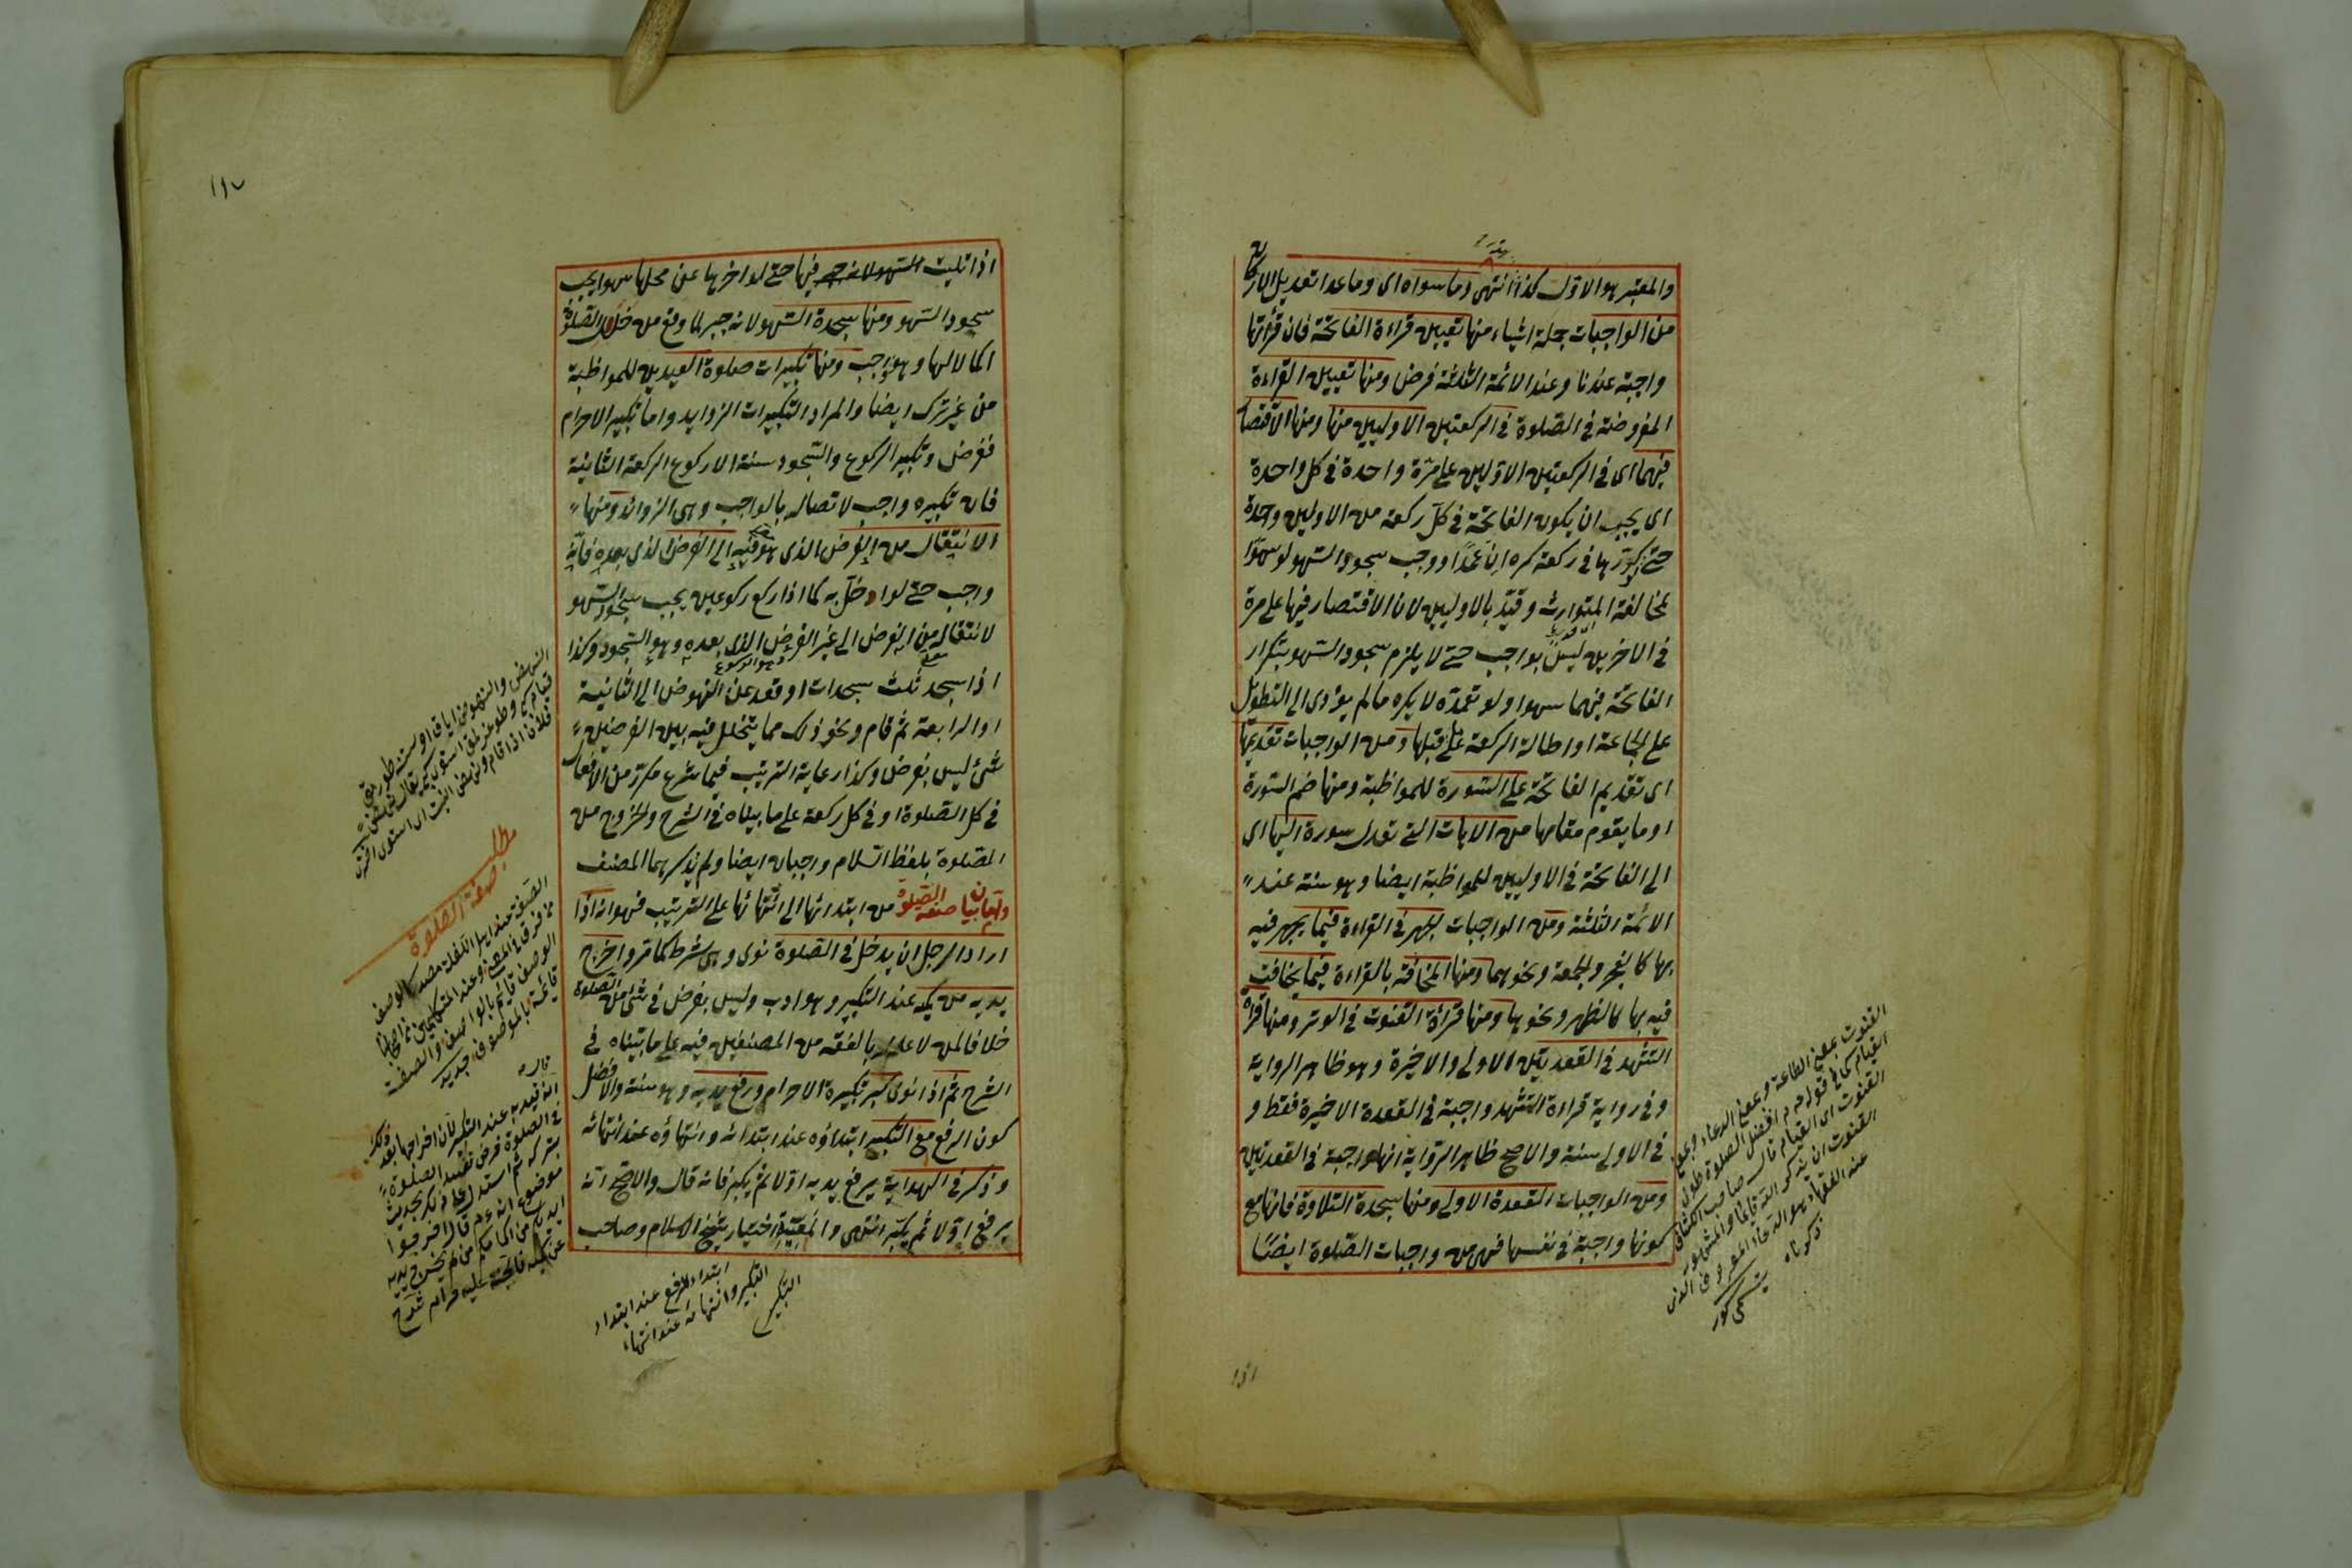 والمعتبر هو الاول كذا انتهى وما سواه اى وما عدا تعديل الاركان
من الواجبات جملة اشياء منها تعيين قراءة الفاتحة فان قرأتها
واجبة عندنا وعند الائمة الثلثة فرض ومنها تعيين القراءة
المفروضة فى الصلوة فى الركعتين الاوليين منها ومنها الاقتصار
فيهما اى فى الركعتين الاوليين على مرة واحدة فى كل واحدة
اى يجب ان يكون الفاتحة فى كل ركعة من الاوليين واحدة
حتى لو كررها فى ركعة كره ان عمدا ووجب سجود السهو لو سهوا
لمخالفة المتوارث وقيد بالاوليين لان الاقتصار فيها على مرة
فى الاخريين ليس بواجب حتى لا يلزم سجود السهو بتكرار
الفاتحة فيهما سهوا ولو تعمده لا يكره ما لم يؤدى الى التطويل
على الجماعة او اطالة الركعة على قبلها ومن الواجبات تقديمها
اى تقديم الفاتحة على السورة للمواظبة ومنها ضم السورة
او ما يقوم مقامها من الايات التى تعدل سورة اليها اى
الى الفاتحة فى الاوليين للمواظبة ايضا وهو سنة عند
الائمة الثلثة ومن الواجبات الجهر فى القراءة فيما يجهر فيه
بها كالفجر والجمعة ونحوهما ومنها المخافتة بالقراءة فيما يخافت
فيه بها كالظهر ونحوها ومنها قراءة القنوت فى الوتر ومنها قراءة
التشهد فى القعدتين الاولى والاخيرة وهو ظاهر الرواية
وفى رواية قراءة التشهد واجبة فى القعدة الاخيرة فقط و
فى الاولى سنة والاصح ظاهر الرواية انها واجبة فى القعدتين
ومن الواجبات القعدة الاولى ومنها سجدة التلاوة فانها مع
كونها واجبة فى نفسها فهى من واجبات الصلوة ايضا
القنوت بمعنى الطاعة وبمعنى الدعاء وبمعنى
القيام كما فى قوله افضل الصلوة طول
القنوت اى القيام قال صاحب الكشاف
القنوت ان يذكر الله قائما والمشهور
عند الفقهاء هو الدعاء المعروف الذى
ذكرناه
١١٧
اذا تليت فيها حتى لو اخرها عن محلها سهوا يجب
سجود السهو ومنها سجدة السهو لانه جبر لما وقع من خلل الصلوة
اكمالا لها وهو واجب ومنها تكبيرات صلوة العيدين للمواظبة
من غير ترك ايضا والمراد التكبيرات الزوايد واما تكبير الاحرام
ففرض وتكبير الركوع والسجود سنة الا ركوع الركعة الثانية
فان تكبيره واجب لاتصاله بالواجب وهى الزوائد ومنها
الانتقال من الفرض الذى هو فيه الى الفرض الذى بعده فانه
واجب حتى لو اخل به كما اذا ركع ركوعين يجب سجود السهو
لانتقاله من الفرض الى غير الفرض الذى بعده وهو السجود وكذا
اذا سجد ثلث سجدات او قعد عن النهوض الى الثانية
او الرابعة ثم قام ونحو ذلك مما يتخلل فيه بين الفرضين
شئ ليس بفرض وكذا رعاية الترتيب فيما شرع مكررا من الافعال
فى كل الصلوة او فى كل ركعة على ما بيناه فى الشرح والخروج من
الصلوة بلفظ السلام واجبان ايضا ولم يذكرهما المصنف
واما بيان صفة الصلوة من ابتدائها الى انتهائها على الترتيب فهو انه اذا
اراد الرجل ان يدخل فى الصلوة نوى وهى شرط كما مر واخرج
يديه من كميه عند التكبير وهو ادب وليس بفرض فى شئ من الصلوة
خلافا لمن لا علم له بالفقه من المصنفين فيه على ما بيناه فى
الشرح ثم اذا نوى كبر تكبيرة الاحرام ورفع يديه وهو سنة والافضل
كون الرفع مع التكبير ابتداؤه عند ابتدائه وانتهاؤه عند انتهائه
وذكر فى الهداية يرفع يديه اولا ثم يكبر فانه قال والاصح انه
يرفع اولا ثم يكبر انتهى والمعية اختيار شيخ الاسلام وصاحب
مطلب
صفة الصلوة
الصفة عند اهل اللغة مصدر كالوصف
الوصف قائم بالواصف والصفة
قائمة بالموصوف
ابتداء الرفع عند ابتداء
التكبير وانتهائه عند انتهاء
التكبير